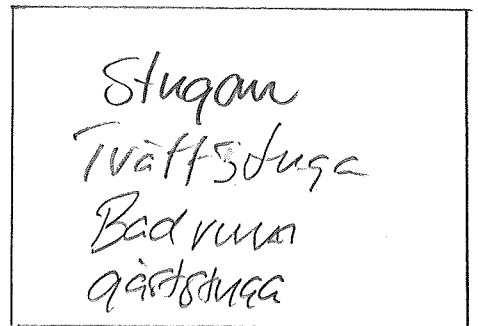 Stugan
Tvättstuga
Badrum
gäststuga